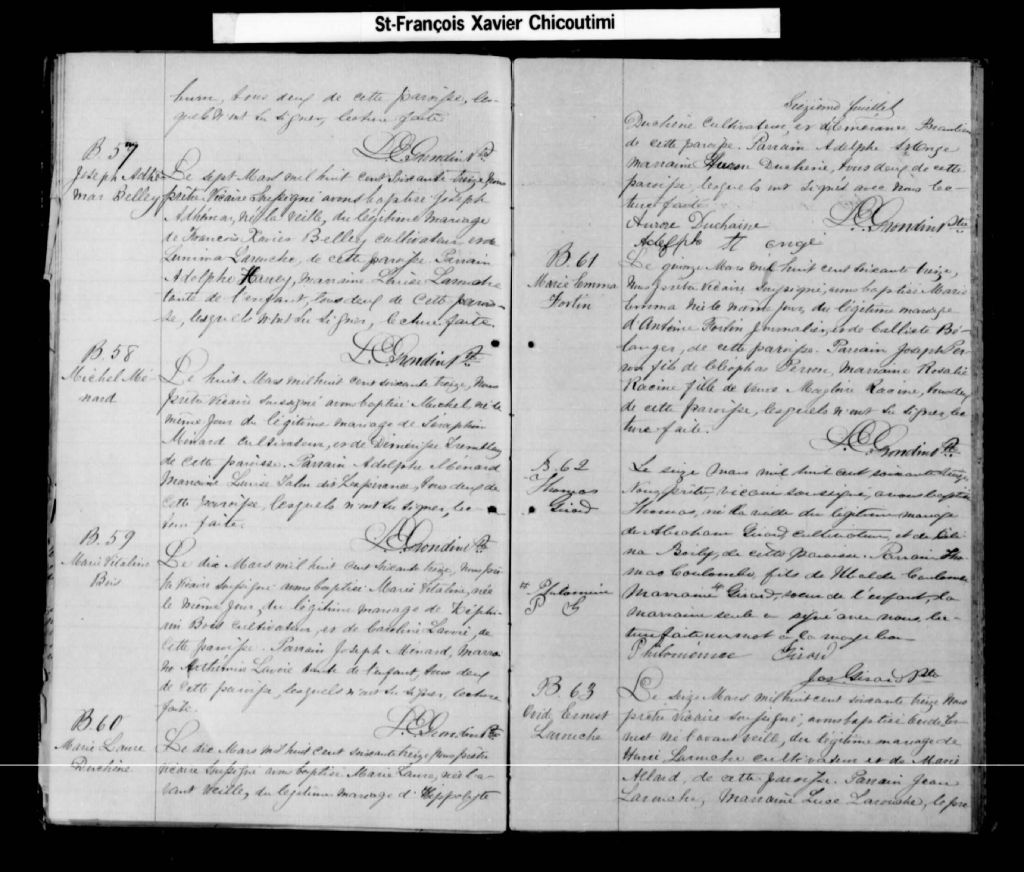 St-François Xavier Chicoutimi
tous deux de cette paroisse, les-
quels n'ont su signer, lecture faite.
B. 57
Joseph Adhé-
mar Belley
Le sept Mars mil huit cent soixante treize, nous
prêtre Vicaire soussigné avons baptisé Joseph
Adhémar, né la veille, du légitime mariage
de François Xavier Belley cultivateur et de
Larouche, de cette paroisse. Parrain
Adolphe Harvey, marraine Louise Larouche
tante de l'enfant, tous deux de cette parois-
se, lesquels n'ont su signer, lecture faite.
B. 58
Michel Mé-
nard
Le huit Mars mil huit cent soixante treize, nous
prêtre vicaire soussigné avons baptisé Michel né le
même jour du légitime mariage de Séraphin
Ménard cultivateur, et de Démerise Tremblay
de cette paroisse. Parrain Adolphe Ménard
Marraine Louise dit Lespérance, tous deux de
cette paroisse, lesquels n'ont su signer, lec-
ture faite.
B. 59
Marie Vitaline
Bois
Le dix Mars mil huit cent soixante treize, nous prê-
tre Vicaire soussigné avons baptisé Marie Vitaline, née
le même jour, du légitime mariage de Zéphi-
rin Bois cultivateur, et de Caroline Lavoie, de
cette paroisse. Parrain Joseph Ménard, marrai-
ne Lavoie tante de l'enfant, tous deux
de cette paroisse, lesquels n'ont su signer, lecture
faite.
B. 60
Marie Laure
Duchêne
Le dix Mars mil huit cent soixante treize nous prêtre
vicaire soussigné avons baptisé Marie Laure, née l'a-
vant veille, du légitime mariage d'Hippolyte
Seizième feuillet
Duchêne cultivateur, et d'Emérance Beaulieu
de cette paroisse. Parrain Adolphe St Onge
marraine Duchêne, tous deux de cette
paroisse, lesquels ont signés avec nous lec-
ture faite.
Aurore Duchaine
Adolph St onge
B. 61
Marie Emma
Fortin
Le quinze Mars mil huit cent soixante treize,
nous prêtre vicaire soussigné, avons baptisé Marie
Emma née le même jour, du légitime mariage
d'Antoine Fortin Journalier, et de Calliste Bé-
langer, de cette paroisse. Parrain Joseph Per-
ron fils de Cléophas Perron, Marraine Rosalie
Racine fille de Magloire Racine, tous deux
de cette paroisse, lesquels n'ont su signer, lec-
ture faite.
B. 62
Thomas
Girard
Le seize Mars mil huit cent soixante treize,
Nous prêtre, vicaire soussigné, avons baptisé
Thomas, né la veille du légitime mariage
de Abraham Girard cultivateur, et de
Boily, de cette paroisse. Parrain Tho-
mas Coulombe, fils de Coulombe
Marraine Girard, soeur de l'enfant, la
marraine seule a signé avec nous, lec-
ture faite
Philomène
P G
Philomene Girard
Jos. Girard Ptre
B 63
Ovid Ernest
Larouche
Le seize Mars mil huit cent soixante treize nous
prêtre vicaire soussigné, avons baptisé Ovide Er-
nest né l'avant veille, du légitime mariage de
Henri Larouche cultivateur et de Marie
Allard, de cette paroisse. Parrain Jean
Larouche, Marraine Luce Larouche, le pre